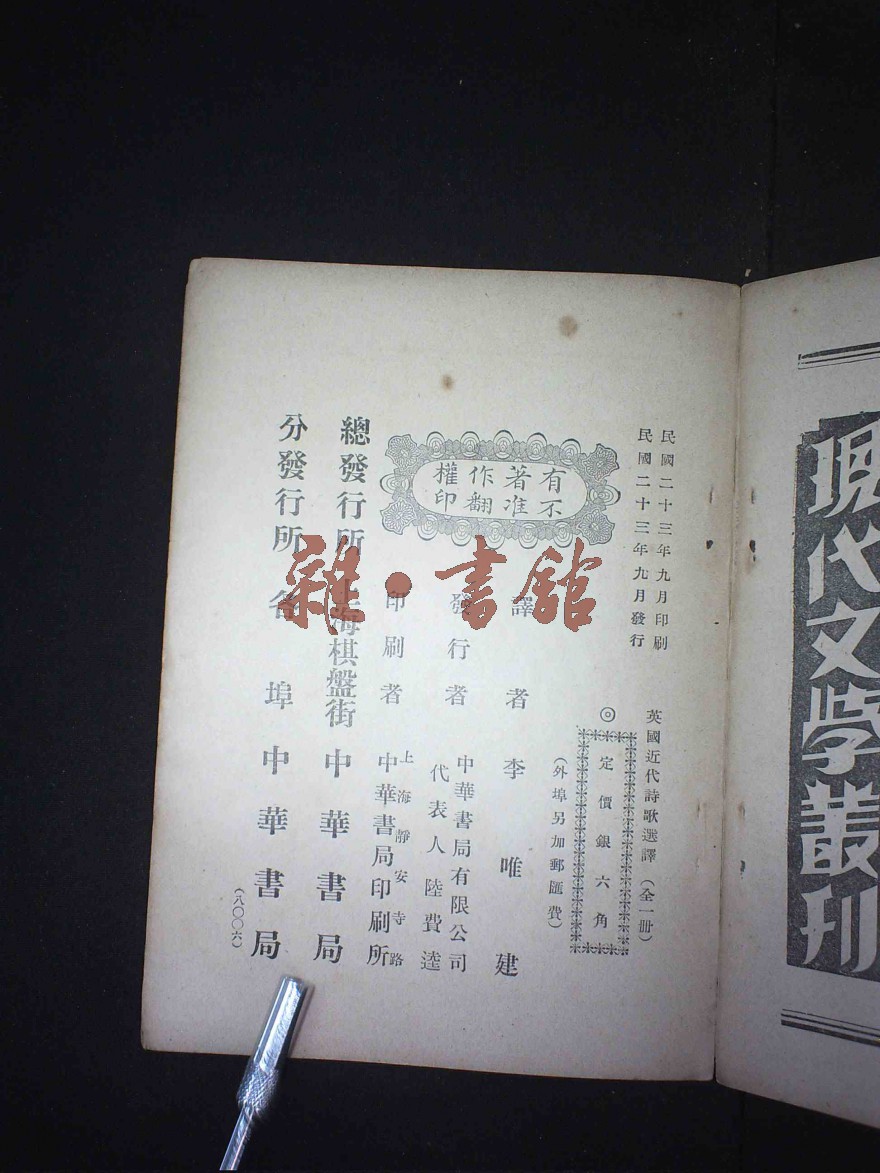 現代文學叢刊
民國二十三年九月印刷
民國二十三年九月發行
英國近代詩歌選譯（全一冊）
◎定價銀六角
（外埠另加郵匯費）
有著作權
不准翻印
譯者 李唯建
發行者 中華書局有限公司
代表人 陸費逵
印刷者 上海靜安寺路
中華書局印刷所
總發行所 上海棋盤街 中華書局
分發行所 各埠 中華書局
（八〇〇六）
雜·書館